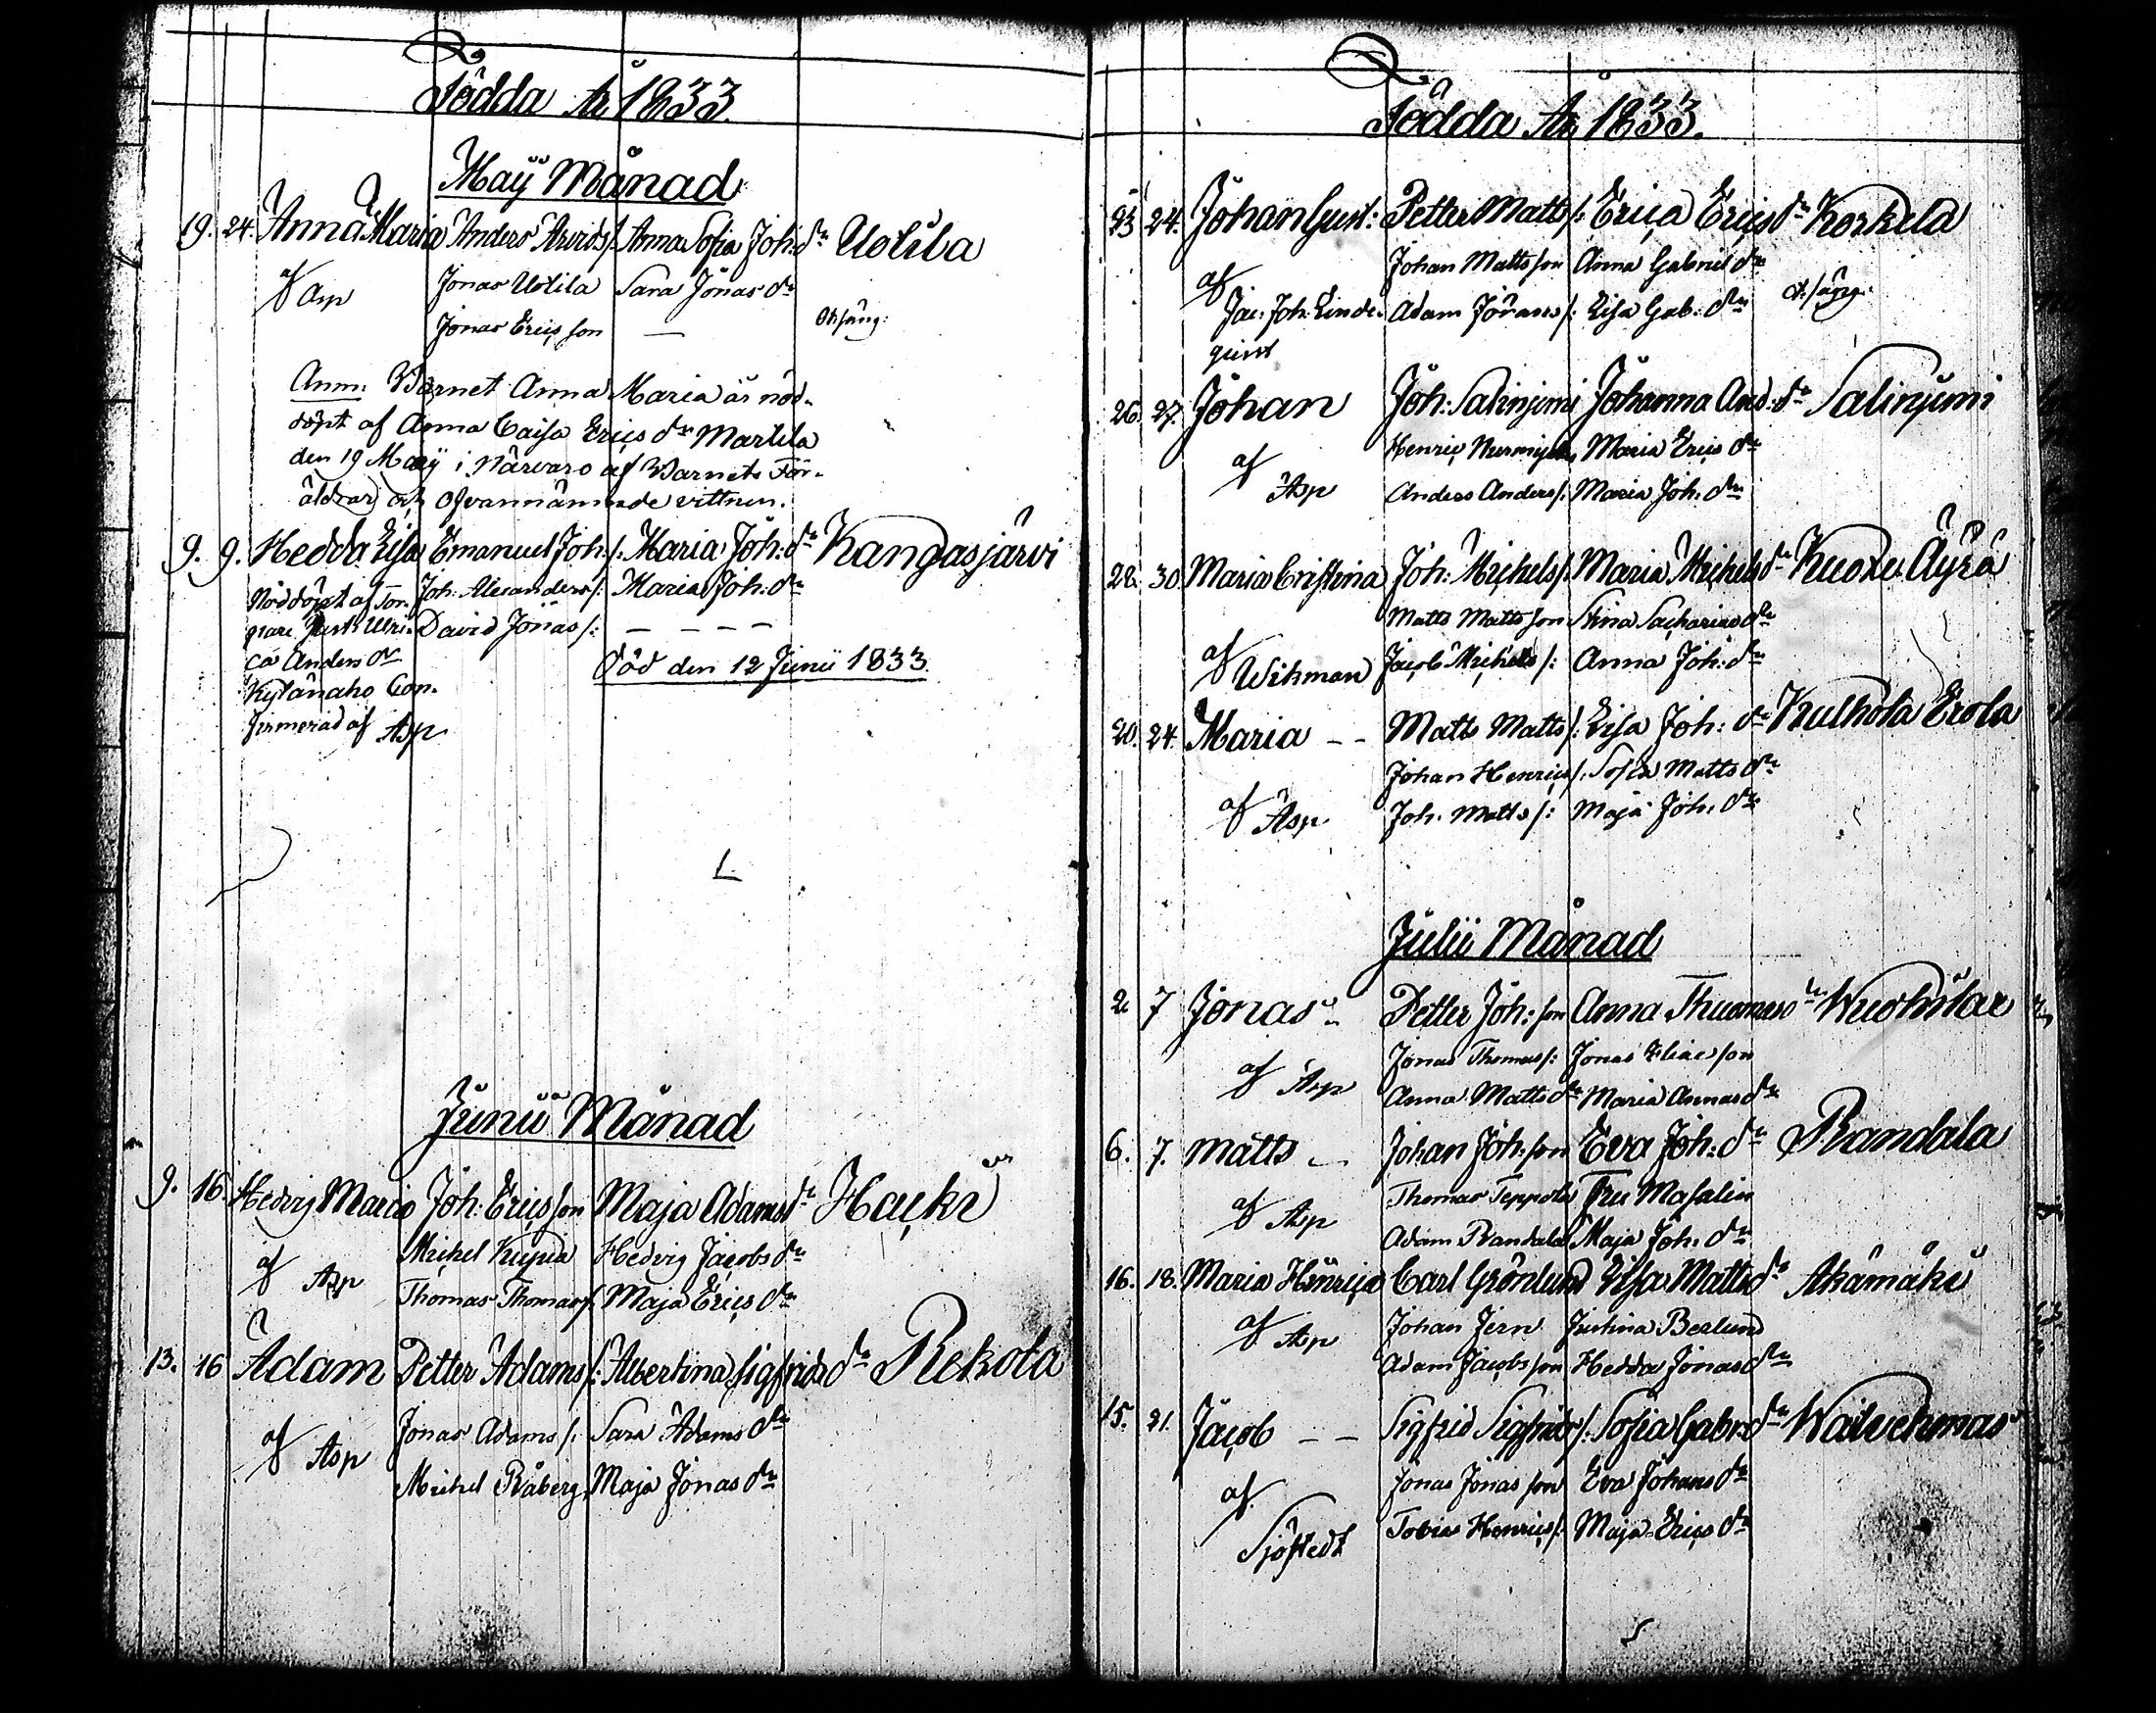 Födda År 1833.
May Månad
19. 24. Anna Maria Anders Arvids/: Anna Sofia Joh: dr Uotila
af Asp Jonas Uotila Sara Jonas dr
Jonas Erics son — Otsång:
Anm: Barnet Anna Maria är nöd-
döpt af Anna Caisa Erics dr Martila
den 19 Maÿ i närvaro af Barnets För-
äldrar och Ofvannämnde vittnen.
9. 9. Hedda Lisa Emanuel Joh:/: Maria Joh: dr Kangasjärvi
Nöddöpt af Tor- Joh: Alexanders/: Maria Joh: dr
pare Enk: Ulri- David Jonas/: — — — —
ca Anders dr död den 12 Junii 1833.
Kylänaho Con-
firmerad af Asp
Junii Månad
9. 16. Hedvig Maria Joh: Erics son Maja Adams dr Hacki
af Asp Michel Kupia Hedvig Jacobs dr
Thomas Thomas/: Maja Erics dr
13. 16 Adam Petter Adams/: Albertina Sigfrids dr Rekola
af Asp Jonas Adams/: Sara Adams dr
Michel Råberg Maja Jonas dr
Födda År 1833.
23 24. Johan Gust: Petter Matts/: Erica Erics dr Korkela
af Johan Matts son Anna Gabriel dr
Jac: Joh: Linde- Adam Jörans/: Lisa Gab: dr
qvist
26. 27. Johan Joh: Salinjumi Johanna And: dr Salinjumi
af Henric Maria Erics dr
Asp Anders Anders/: Maria Joh: dr
28. 30. Maria Cristina Joh: Michels/: Maria Michels dr Kuoxu Äÿrä
Matts Matts son Stina Sacharias dr
af Wikman Jacob Michels/: Anna Joh: dr
20. 24. Maria — — Matts Matts/: Lisa Joh: dr Kulhola Erola
Johan Henrics/: Sofia Matts dr
af Asp Joh: Matts/: Maja Joh: dr
Julii Månad
2 7 Jonas — Petter Joh: son Anna Thuomas dr
af Asp Jonas Thomas/: Jonas Elias son
Anna Matts dr Maria Annas dr
6. 7. Matts — Johan Joh: son Eva Joh: dr Randala
af Asp Thomas Teppola Fru Masalin
Adam Randala Maja Joh: dr
16. 18. Maria Henrica Carl Grönlund Lisa Matts dr Akamäki
af Asp Johan Jern Justina Berlund
Adam Jacobs son Hedda Jonas dr
15. 21. Jacob — — Sigfrid Sigfrids/: Sofia Gabr: dr
af Jonas Jonas son Eva Johans dr
Sjöstedt Tobias Henrics/: Maja Erics dr